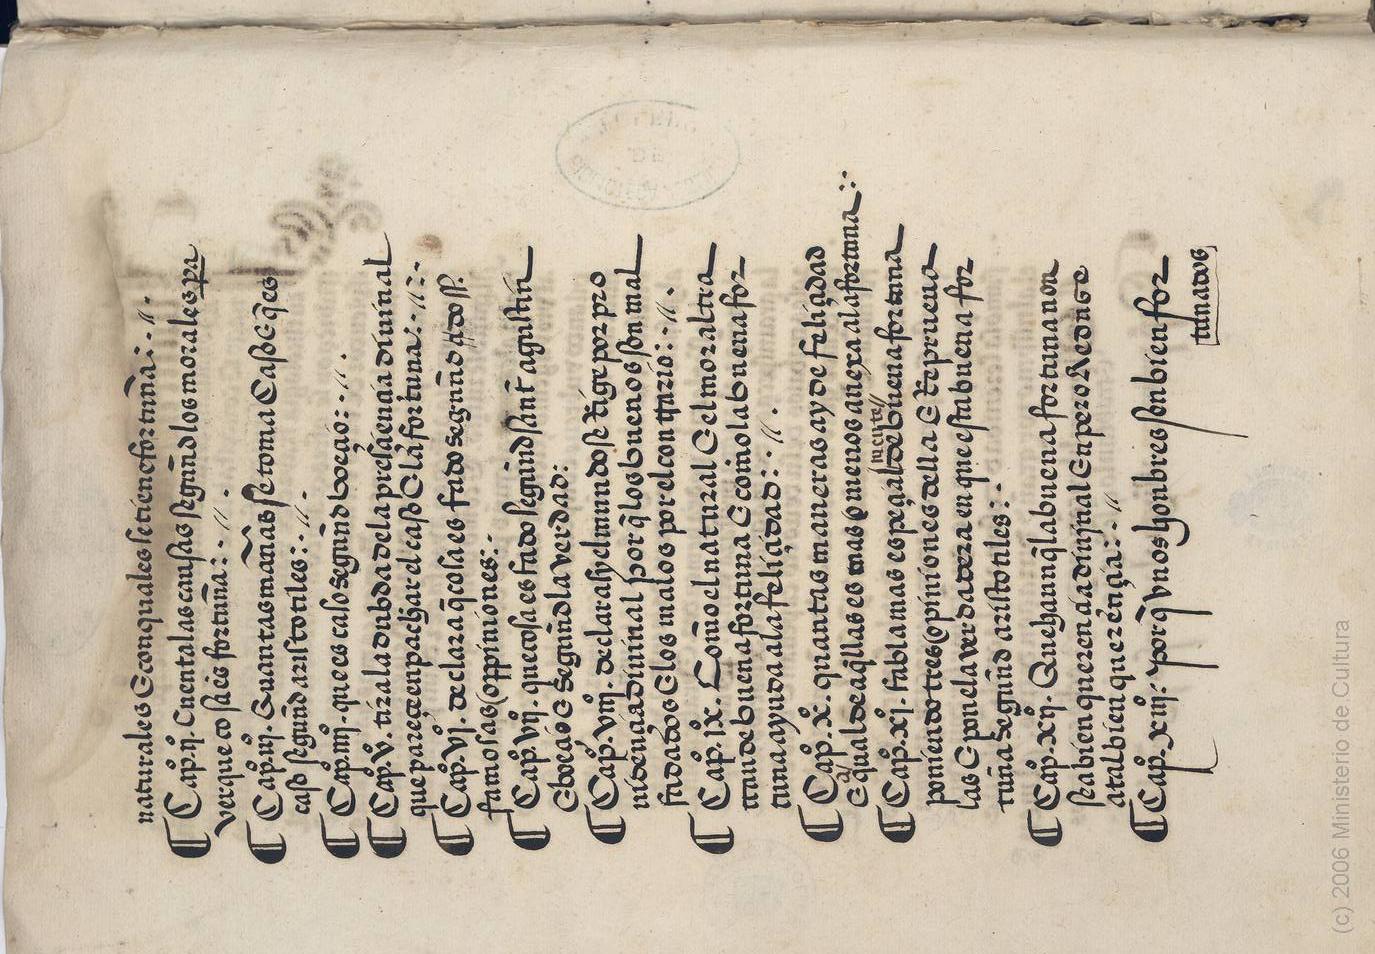 naturales & con quales se tiene fortuna:-//-
¶ Capº. ij. Cuenta las causas segund los morales pa
ver que cosa es fortuna:-//-
¶ Capº. iij. Quantas maneras se toma Caso & q̃ es
caso segund aristotiles:-//-
¶ Capº. iiij. que es caso segund boeçio:-//-
¶ Capº. v. tira la dubda de la presçiençia diuinal
que pareçe enpachar el caso & la fortuna:-//:-
¶ Capº. vj. declara q̃ cosa es fado segund
famosas oppiniones:-
¶ Capº. vij. que cosa es fado segund sant agustin
& boeçio & segund la verdad:
¶ Capº. viij. declara sy el mundo se rige por pro
uidençia diuinal por q̃ los buenos son mal
fadados & los malos por el contrario:-//-
¶ Capº. ix. Como el natural & el moral tra
tan de buena fortuna & como la buena for
tuna ayuda a la feliçidad:-//-
¶ Capº. x. quantas maneras ay de feliçidad
& a qual de aq̃llas es mas o menos anexa la fortuna:-
¶ Capº. xj. fabla mas espeçial mente de buena fortuna
poniendo tres opiniones della & reprueua
las & pone la verdadera en que esta buena for
tuna segund aristotiles:-
¶ Capº. xij. Que haun q̃ la buena fortuna non
sea bien querençia diuinal Enpero Reduze
a tal bien querençia:-//
¶ Capº. xiij. por q̃ vnos hombres son bien for
tunados
(c) 2006 Ministerio de Cultura